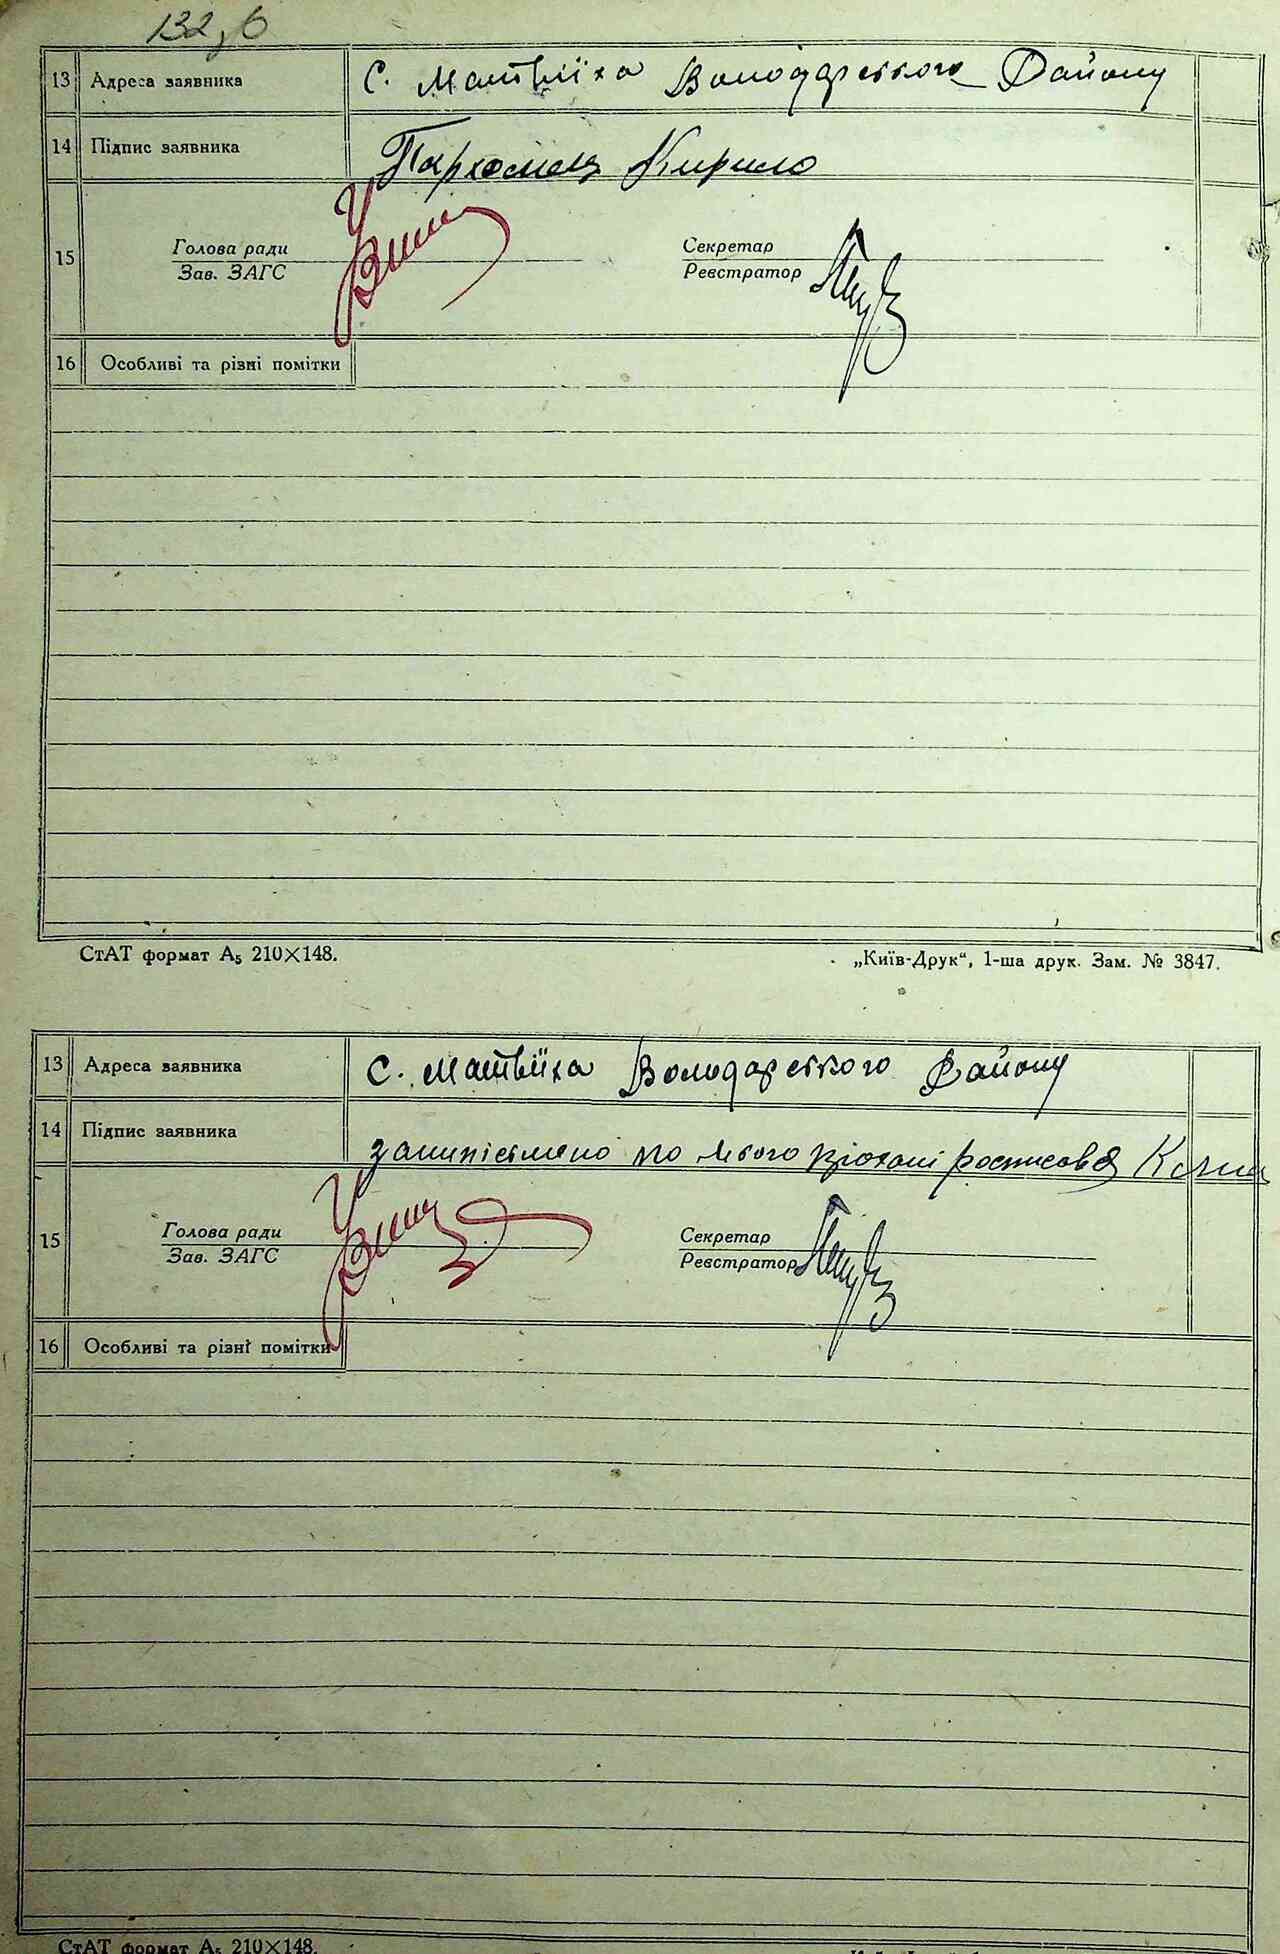 132, б
13 Адреса заявника с. Матвіїха Володарського Району
14 Підпис заявника Пархомец Кирило
15 Голова ради Секретар
Зав. ЗАГС Реєстратор
16 Особливі та різні помітки
СтАТ формат А₅ 210×148. „Київ-Друк“, 1-ша друк. Зам. № 3847.
13 Адреса заявника с. Матвіїха Володарського Району
14 Підпис заявника по його росписовся
15 Голова ради Секретар
Зав. ЗАГС Реєстратор
16 Особливі та різні помітки
СтАТ формат А₅ 210×148.